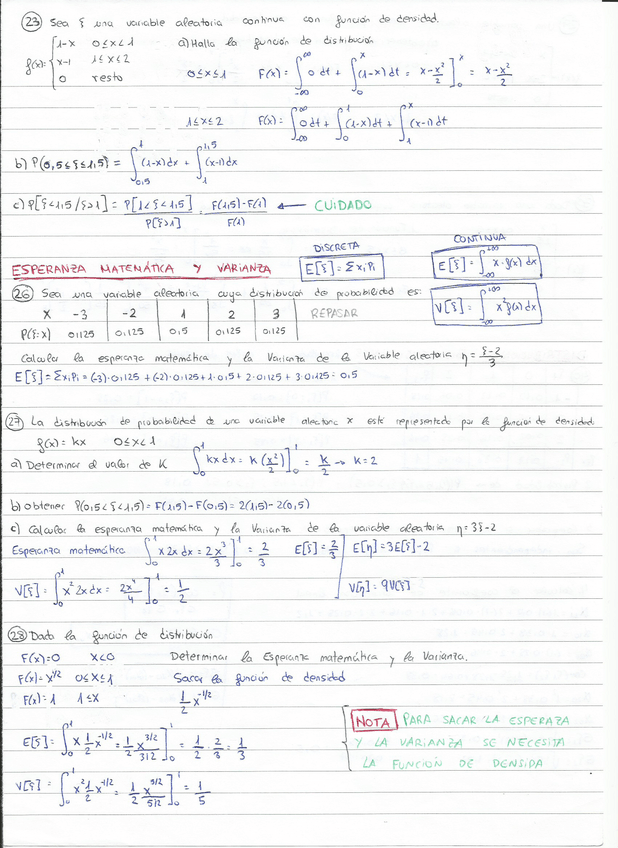 (23) Sea ξ una variable aleatoria continua con función de densidad.
f(x)= { 1-x 0≤x<1 a) Halla la función de distribución
x-1 1≤x≤2
0 resto
0≤x≤1 F(x) = ∫_{-∞}^{∞} 0 dt + ∫_0^x (1-x) dt = x - x²/2 ]_0^x = x - x²/2
1≤x≤2 F(x) = ∫_{-∞}^{∞} 0 dt + ∫_0^1 (1-x) dt + ∫_1^x (x-1) dt
b) P(0,5≤ξ≤1,5) = ∫_{0,5}^1 (1-x) dx + ∫_1^{1,5} (x-1) dx
c) P[ξ<1,5/ξ>1] = P[1<ξ<1,5] / P[ξ>1] = F(1,5)-F(1) / F(1) ← CUIDADO
ESPERANZA MATEMÁTICA Y VARIANZA
DISCRETA
E[ξ] = Σxi Pi
CONTINUA
E[ξ] = ∫_{-∞}^{+∞} x·f(x) dx
V[ξ] = ∫_{-∞}^{+∞} x² f(x) dx
(26) Sea una variable aleatoria cuya distribución de probabilidad es:
x -3 -2 1 2 3 REPASAR
P(ξ=x) 0,125 0,125 0,5 0,125 0,125
Calcular la esperanza matemática y la Varianza de la Variable aleatoria η = ξ-2/3
E[ξ] = Σxi Pi = (-3)·0,125 + (-2)·0,125 + 1·0,5 + 2·0,125 + 3·0,125 = 0,5
(27) La distribución de probabilidad de una variable aleatoria x está representado por la función de densidad.
f(x) = kx 0≤x<1
a) Determinar el valor de K ∫_0^1 kx dx = k (x²/2) ]_0^1 = k/2 → k=2
b) obtener P(0,5<ξ<1,5) = F(1,5)-F(0,5) = 2(1,5)-2(0,5)
c) Calcular la esperanza matemática y la Varianza de la variable aleatoria η = 3ξ-2
Esperanza matemática ∫_0^1 x 2x dx = 2x³/3 ]_0^1 = 2/3 E[ξ] = 2/3 E[η] = 3E[ξ]-2
V[ξ] = ∫_0^1 x² 2x dx = 2x⁴/4 ]_0^1 = 1/2 V[η] = 9V[ξ]
(28) Dado la función de distribución
F(x)=0 x<0 Determinar la Esperanza matemática y la Varianza.
F(x)=x^{1/2} 0≤x≤1 Sacar la función de densidad
F(x)=1 1≤x 1/2 x^{-1/2}
E[ξ] = ∫_0^1 x 1/2 x^{-1/2} = 1/2 x^{3/2}/3/2 ]_0^1 = 1/2 · 2/3 = 1/3
V[ξ] = ∫_0^1 x² 1/2 x^{-1/2} = 1/2 x^{5/2}/5/2 ]_0^1 = 1/5
NOTA PARA SACAR LA ESPERAZA
Y LA VARIANZA SE NECESITA
LA FUNCION DE DENSIDA